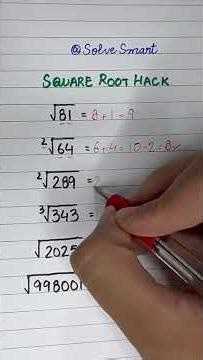 @SolveSmart
SQUARE ROOT HACK
√81 = 8+1=9
²√64 = 6+4=10-2=8✓
²√289 =
³√343 =
√2025
√998001